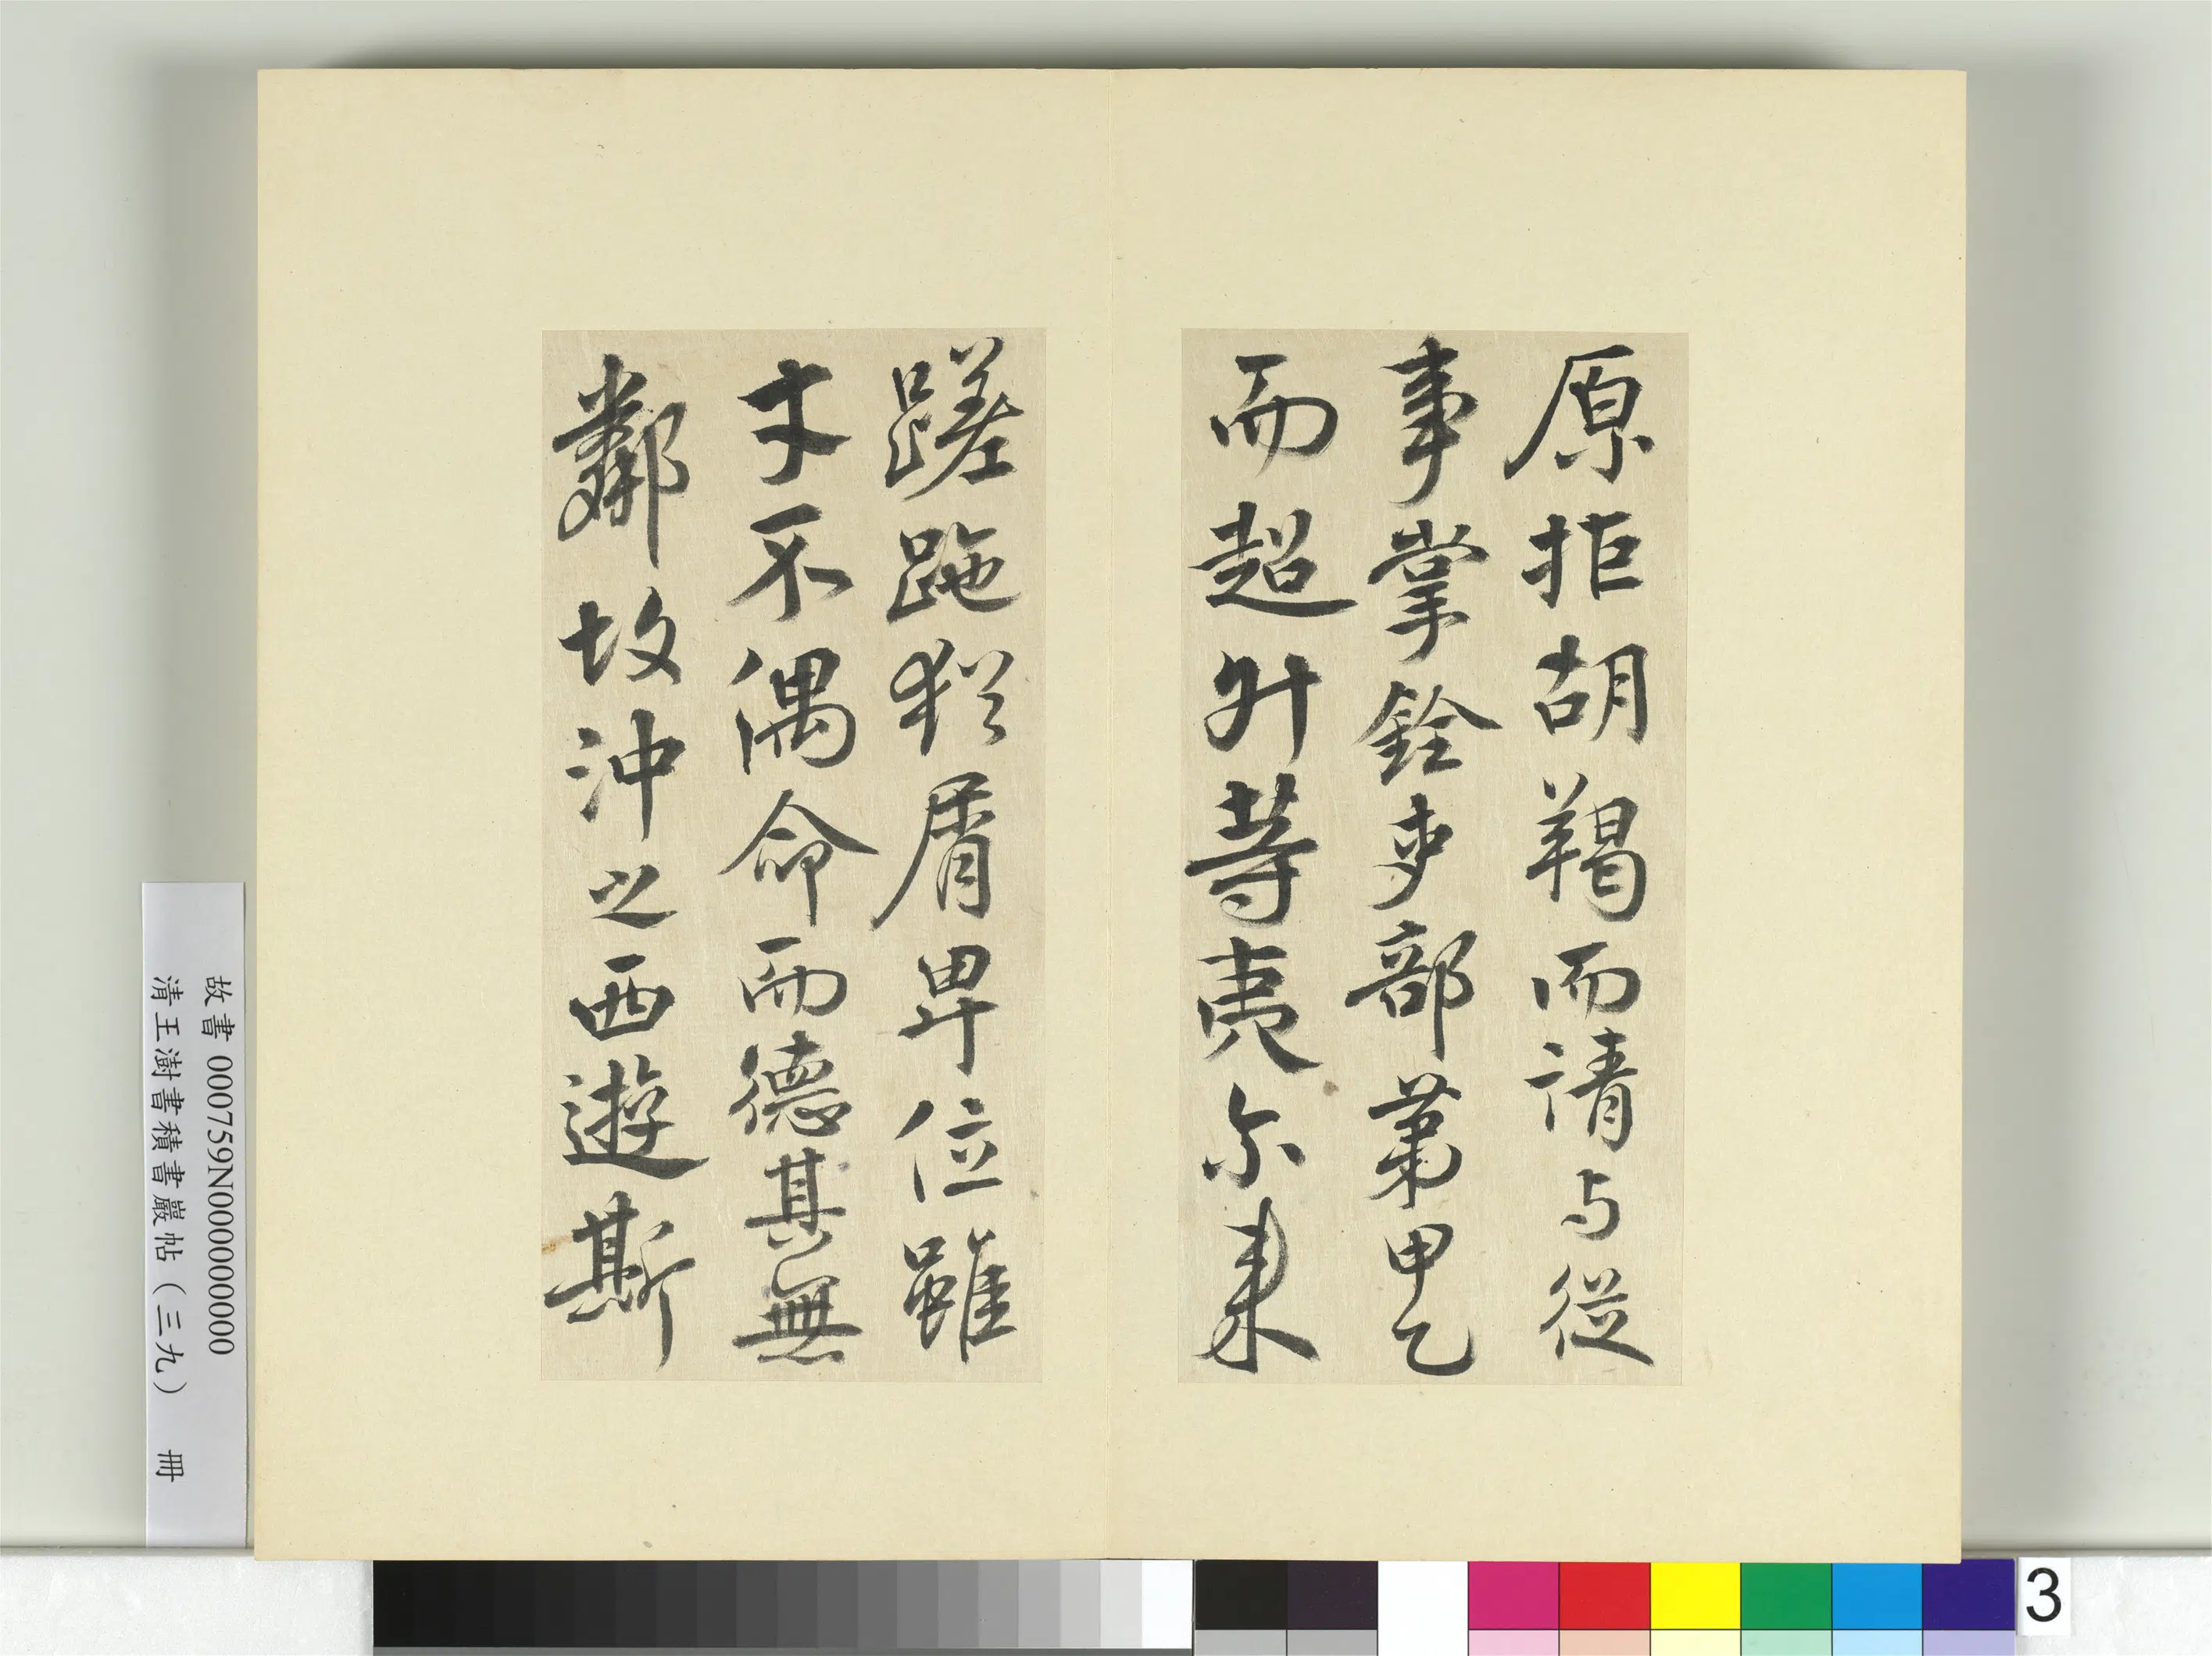 原拒胡羯而請与從
事掌銓吏部第甲乙
而超升等夷尔来
蹉跎猶屑卑位雖
才不偶命而德其無
鄰故沖之西遊斯
故書 000759N000000000
清王澍書積書巖帖（三九） 冊
3